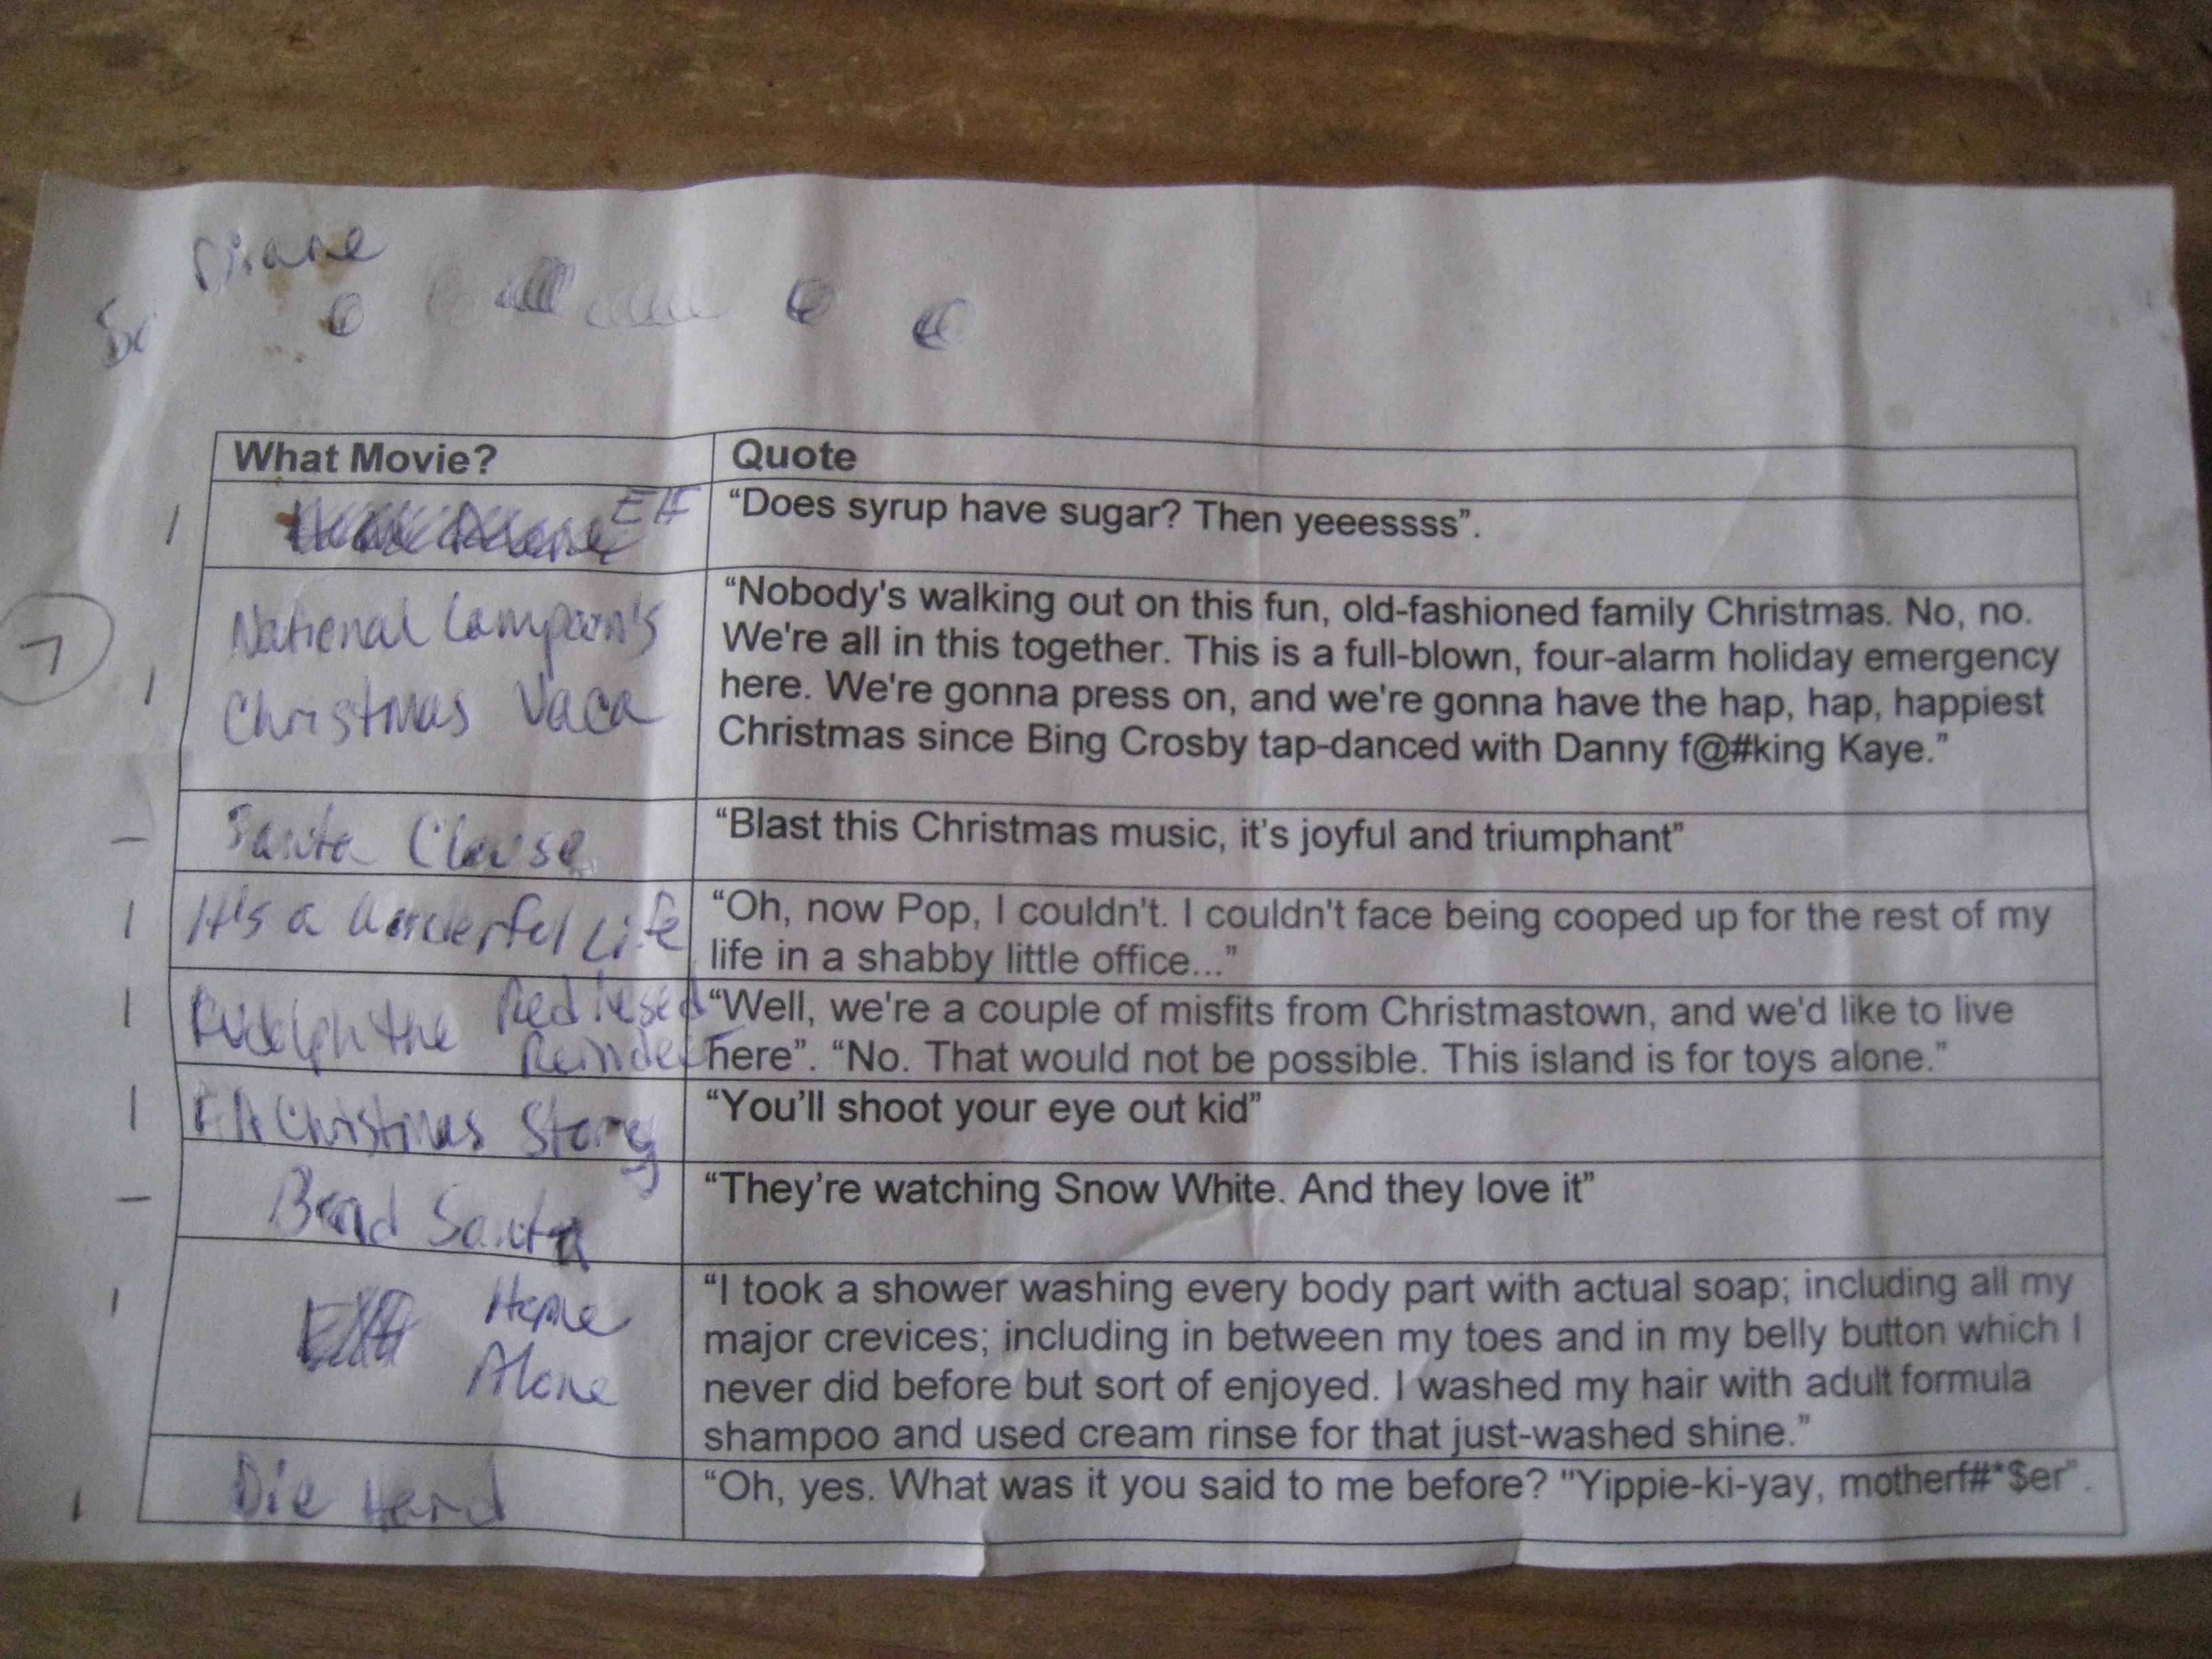 Diane
What Movie? Quote
1 Elf "Does syrup have sugar? Then yeeessss".
National Lampoon's "Nobody's walking out on this fun, old-fashioned family Christmas. No, no.
7 We're all in this together. This is a full-blown, four-alarm holiday emergency
1 Christmas Vaca here. We're gonna press on, and we're gonna have the hap, hap, happiest
Christmas since Bing Crosby tap-danced with Danny f@#king Kaye."
– Santa Clause "Blast this Christmas music, it's joyful and triumphant"
1 It's a Wonderful Life "Oh, now Pop, I couldn't. I couldn't face being cooped up for the rest of my
life in a shabby little office..."
1 Rudolph the Red Nosed "Well, we're a couple of misfits from Christmastown, and we'd like to live
Reindeer here". "No. That would not be possible. This island is for toys alone."
1 A Christmas Story "You'll shoot your eye out kid"
– Bad Santa "They're watching Snow White. And they love it"
1 Home "I took a shower washing every body part with actual soap; including all my
Alone major crevices; including in between my toes and in my belly button which I
never did before but sort of enjoyed. I washed my hair with adult formula
shampoo and used cream rinse for that just-washed shine."
1 Die Hard "Oh, yes. What was it you said to me before? "Yippie-ki-yay, motherf#*$er".